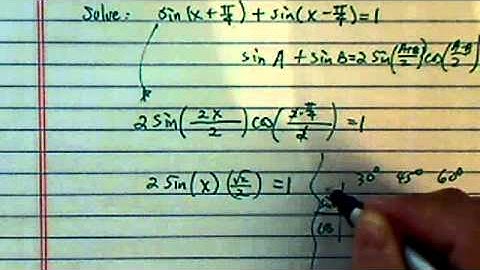 Solve: sin(x + π/4) + sin(x - π/4) = 1
sin A + sin B = 2 sin((A+B)/2) cos((A-B)/2)
2 sin(2x/2) cos((2·π/4)/2) = 1
2 sin(x) (√2/2) = 1
30° 45° 60°
sin
cos